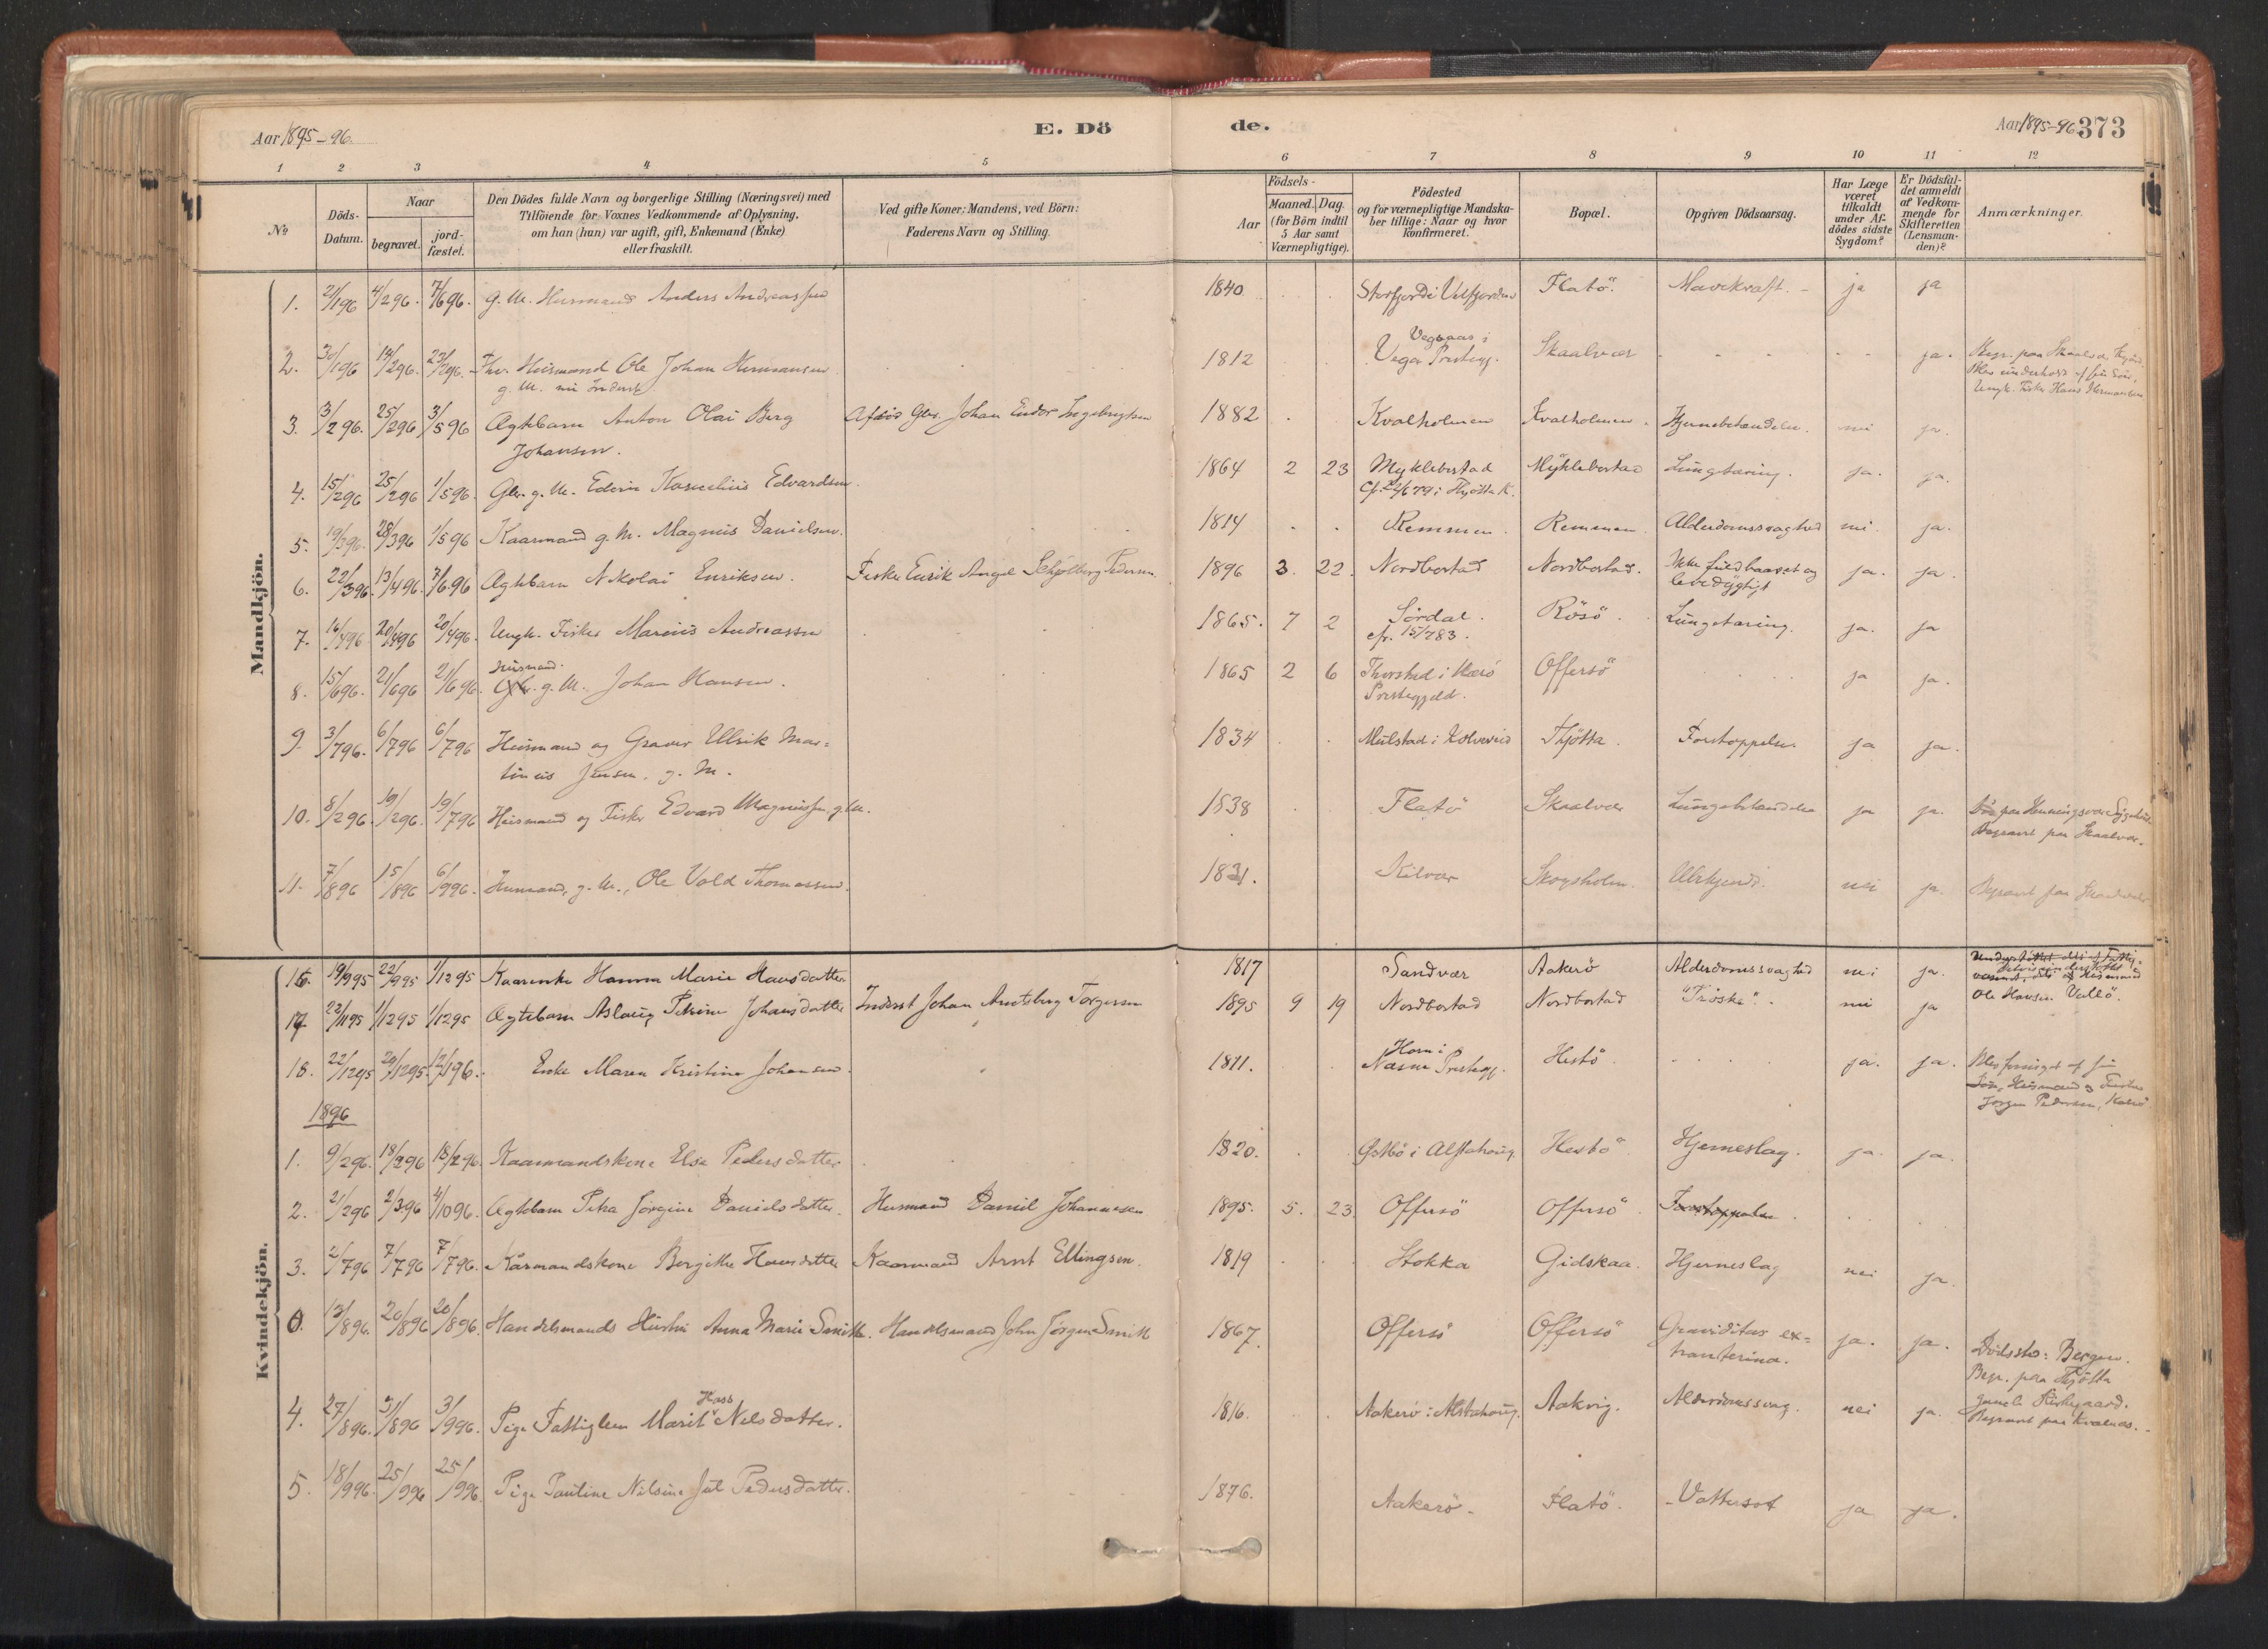 Aar 1895-96.
E. Dö
de.
Aar 1895-96 373
1 2 3 4 5 6 7 8 9 10 11 12
No
Döds-Datum.
Naar
begravet.
jordfæstet.
Den Dödes fulde Navn og borgerlige Stilling (Næringsvei) med
Tilföiende for Voxnes Vedkommende af Oplysning.
om han (hun) var ugift, gift, Enkemand (Enke)
eller fraskilt.
Ved gifte Koner: Mandens, ved Börn:
Faderens Navn og Stilling.
Födsels-
Aar
Maaned. Dag.
(for Börn indtil
5 Aar samt
Værnepligtige).
Födested
og for værnepligtige Mandska-
ber tillige: Naar og hvor
konfirmeret.
Bopæl.
Opgiven Dödsaarsag.
Har Læge
været
tilkaldt
under Af-
dödes sidste
Sygdom?
Er Dödsfal-
det anmeldt
af Vedkom-
mende for
Skifteretten
(Lensman-
den)?
Anmærkninger.
Mandkjön.
1. 21/196 4/296. 7/696. g. M. Husmand Anders Andreassen 1840 Storfjord i Velfjorden Flatö. Mavekræft. ja ja
2. 30/196 14/296. 23/296. Husmand Ole Johan Hermansen 1812 Vega Prestegj. Skaalvær ja.
g. M. nu Inderst
3. 3/296. 25/296 3/596 Ægtebarn Anton Olai Berg Johan Endor Ingebrigtsen 1882 Kvalholmen Kvalholmen. Hjernebetændelse. nei ja.
Johansen.
4. 15/296 25/296 1/596. Gbr. g. M. Edvardsen. 1864 2 23 Myklebostad Myklebostad Lungetæring. ja. ja.
Cf. i Thjötta K.
5. 19/396. 28/396 1/596 Kaarmand g. M. Magnus Danielsen. 1814 Remmen. Remmen. Alderdomssvaghed nei ja.
6. 22/396. 13/496. 7/696 Ægtebarn Nikolai Enriksen. Fisker Enrik Angel Schjølberg Pedersen. 1896 3. 22. Nordbostad Nordbostad. Ikke fuldbaaret og ja. ja.
levedygtigt
7. 16/496 20/496 20/496. Ungk. Fisker Marius Andreassen 1865. 7 2 Sørdal. Rösö. Lungetæring. ja. ja
cfr. 15/783.
Husmand.
8. 15/696. 21/696 21/696. Gbr. g. M. Johan Hansen. 1865 2 6 Thorstad i Herö Offersö ja ja.
Prestegjeld.
9. 3/796. 6/796 6/796 Husmand og Graver Ulrik Mar- 1834 Mulstad i Kolvereid Thjötta. Forstoppelse. ja ja.
tinius Jensen. g. M.
10. 8/296. 19/296. 19/796 Husmand og Fisker Edvard Magnussen, g. M. 1838 Flatö Skaalvær Lungebetændelse ja ja. Död paa Henningsvær Sygehus.
Begravet paa Skaalvær.
11. 7/896 15/896 6/996. Husmand, g. M., Ole Vold Thomassen. 1831. Kilvær Skogsholm. Ubekjendt. nei ja. Begravet paa Skaalvær
Kvindekjön.
16. 19/995 22/995 1/1295 Kaarenke Hanna Marie Hansdatter 1817 Sandvær Aakerö Alderdomssvaghed nei ja.
17. 22/1195 1/1295 1/1295 Ægtebarn Aslaug Petrine Johansdatter Inderst Johan Arntsberg Torgersen 1895 9 19 Nordbostad Nordbostad "Tröske". nei ja Ole Hansen Vallö.
18. 22/1295 29/1295 12/196. Enke Maren Kristine Johansen. 1811. Horn i Hestö. ja. ja. Blev forsörget af sin
Næsne Prestegj. Sön, Husmand og Fisker
Jörgen Pedersen,
1896
1. 9/296. 18/296 18/296. Kaarmandskone Else Pedersdatter 1820. Østbö i Alstahoug. Hestö Hjerneslag. ja. ja.
2. 21/296 2/396 4/1096. Ægtebarn Petra Jörgine Danielsdatter. Husmand Daniel Johannesen 1895. 5. 23. Offersö Offersö. Forstoppelse.
3. 2/796 7/796 7/796. Kårmandskone Bergitte Hansdatter Kaarmand Arnt Ellingsen. 1819 Stokka Gidskaa. Hjerneslag nei ja.
0. 13/896. 20/896 20/896. Handelsmands Hustru Anna Marie Smith. Handelsmand John Jörgen Smith 1867. Offersö Offersö Graviditas ex- ja. ja. Dödssted: Bergen.
trauterina. Begr. paa Thjötta
gamle Kirkegaard.
4. 27/896. 31/896 3/996. Pige Fattiglem Marit Nelsdatter. 1816. Aakerö i Alstahoug. Aakvig. Alderdomssvag. nei ja. Begravet paa Kvalnes.
5. 18/996. 25/996 25/996. Pige Pauline Nilsine Jul Pedersdatter. 1876. Aakerö. Flatö. Vattersot ja ja.